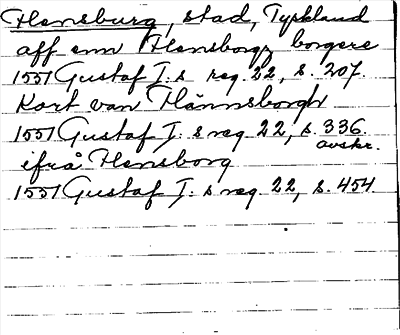 Flensburg, stad, Tyskland
aff em Flensborgz borgere
1551 Gustaf I:s reg. 22, s. 207.
Kort van Flännsborgh
1551 Gustaf I:s reg. 22, s. 336.
avskr.
ifrå Flensborg
1551 Gustaf I:s reg. 22, s. 454